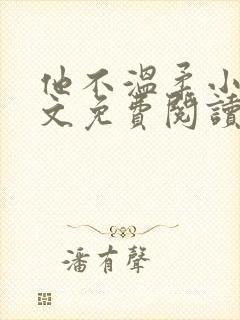 他不溫柔小
文免費閱讀
潘有聲